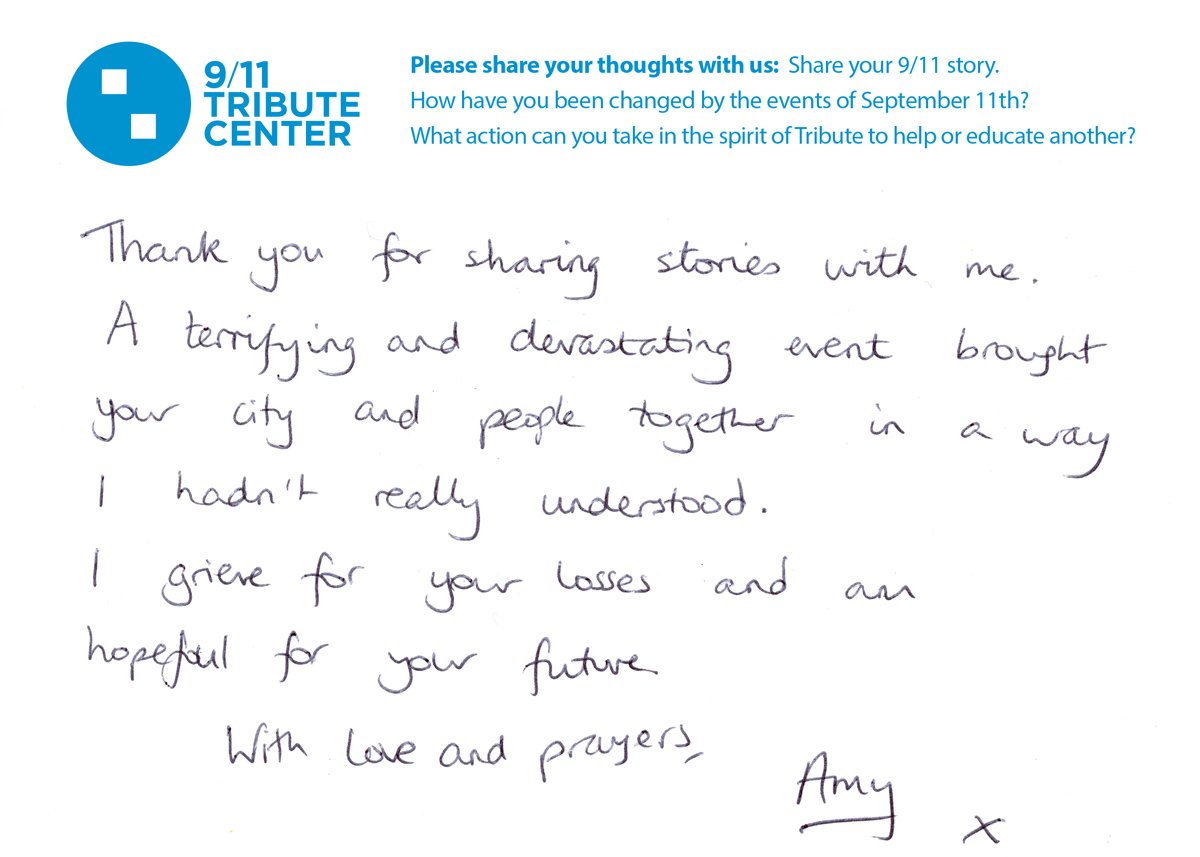 9/11
TRIBUTE
CENTER
Please share your thoughts with us: Share your 9/11 story.
How have you been changed by the events of September 11th?
What action can you take in the spirit of Tribute to help or educate another?
Thank you for sharing stories with me.
A terrifying and devastating event brought
your city and people together in a way
I hadn't really understood.
I grieve for your losses and am
hopeful for your future
With love and prayers,
Amy
x